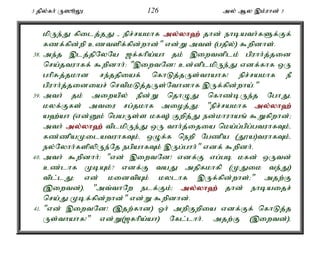 3 தில்கர் ருஸுலு 126 அல் ஆல இம்ரான் 3
மிருந்து கிடைத்தது , நிச்சயமாக அல்லாஹ் தான் நாடியவர்களுக்குக்
கணக்கின்றி உணவளிக்கின்றான்" என்று அவள் (பதில்) கூறினாள்.
38. அந்த இடத்திலேயே ஜக்கரிய்யா தம் இறைவனிடம் பிரார்த்தனை
செய்தவராகக் கூறினார்: "இறைவனே! உன்னிடமிருந்து எனக்காக ஒரு
பரிசுத்தமான சந்ததியைக் கொடுத்தருள்வாயாக! நிச்சயமாக நீ
பிரார்த்தனையைச் செவிமடுத்தருள்வோனாக இருக்கின்றாய்."
39. அவர் தம் அறையில் நின்று தொழுது கொண்டிருந்த போது,
மலக்குகள் அவரை சப்தமாக அழைத்து: "நிச்சயமாக அல்லாஹ்
யஹ்யா (என்னும் பெயருள்ள மகவு) குறித்து நன்மாராயங் கூறுகிறான்;
அவர் அல்லாஹ் விடமிருந்து ஒரு வார்த்தையை மெய்ப்பிப்பவராகவும்,
கண்ணியமுடையவராகவும், ஒழுக்க நெறி பேணிய (தூய)வராகவும்,
நல்லோர்களிலிருந்தே நபியாகவும் இருப்பார்" எனக் கூறினர்.
40. அவர் கூறினார்: "என் இறைவனே! எனக்கு எப்படி மகன் ஒருவன்
உண்டாக முடியும்? எனக்கு வயது அதிகமாகி (முதுமை வந்து)
விட்டது; என் மனைவியும் மலடாக இருக்கின்றாள்;" அதற்கு
(இறைவன்), "அவ்வாறே நடக்கும்; அல்லாஹ் தான் நாடியதைச்
செய்து முடிக்கின்றான்" என்று கூறினான்.
41. "என் இறைவனே! (இதற்கான) ஓர் அறிகுறியை எனக்குக் கொடுத்த
ருள்வாயாக!" என்று(ஜகரிய்யா) கேட்டார். அதற்கு (இறைவன்),